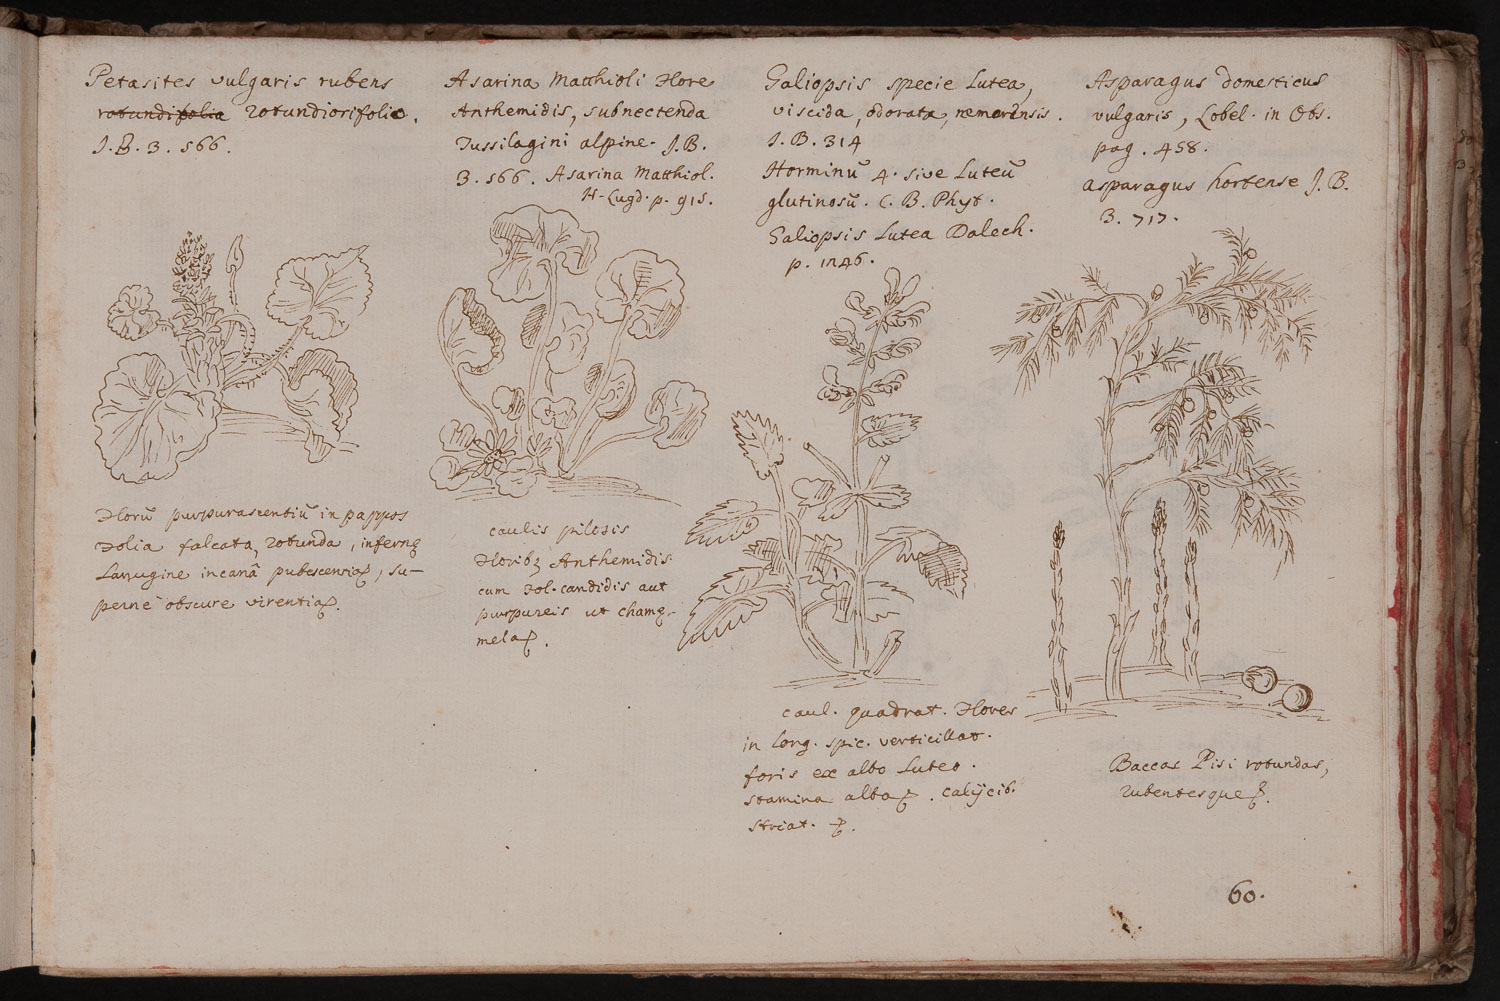 Petasites vulgaris rubens
rotundifolia rotundiorifolio.
J.B. 3. 566.
Asarina Matthioli Flore
Anthemidis, subnectenda
Tussilagini alpine. J.B.
3. 566. Asarina Matthiol.
H. Lugd. p. 915.
Galiopsis specie Lutea,
viscida, odorata, nemorensis.
J.B. 314
Horminū 4. sive Luteū
glutinosū. C.B. Phyt.
Galiopsis Lutea Dalech.
p. 1246.
Asparagus domesticus
vulgaris, Lobel. in Obs.
pag. 458.
asparagus hortense J.B.
3. 717.
Florū purpurascentiū in pappos
Folia falcata, rotunda, infernę
Lanugine incanâ pubescentia, su-
perne obscure virentia.
caulis pilosis
Florib9 Anthemidis
cum fol. candidis aut
purpureis ut chamę-
mela.
caul. quadrat. Flores
in long. spic. verticillat.
foris ex albo Luteo.
stamina alba. calijcib.
striat.
Baccas Pisi rotundas,
rubentesque.
60.